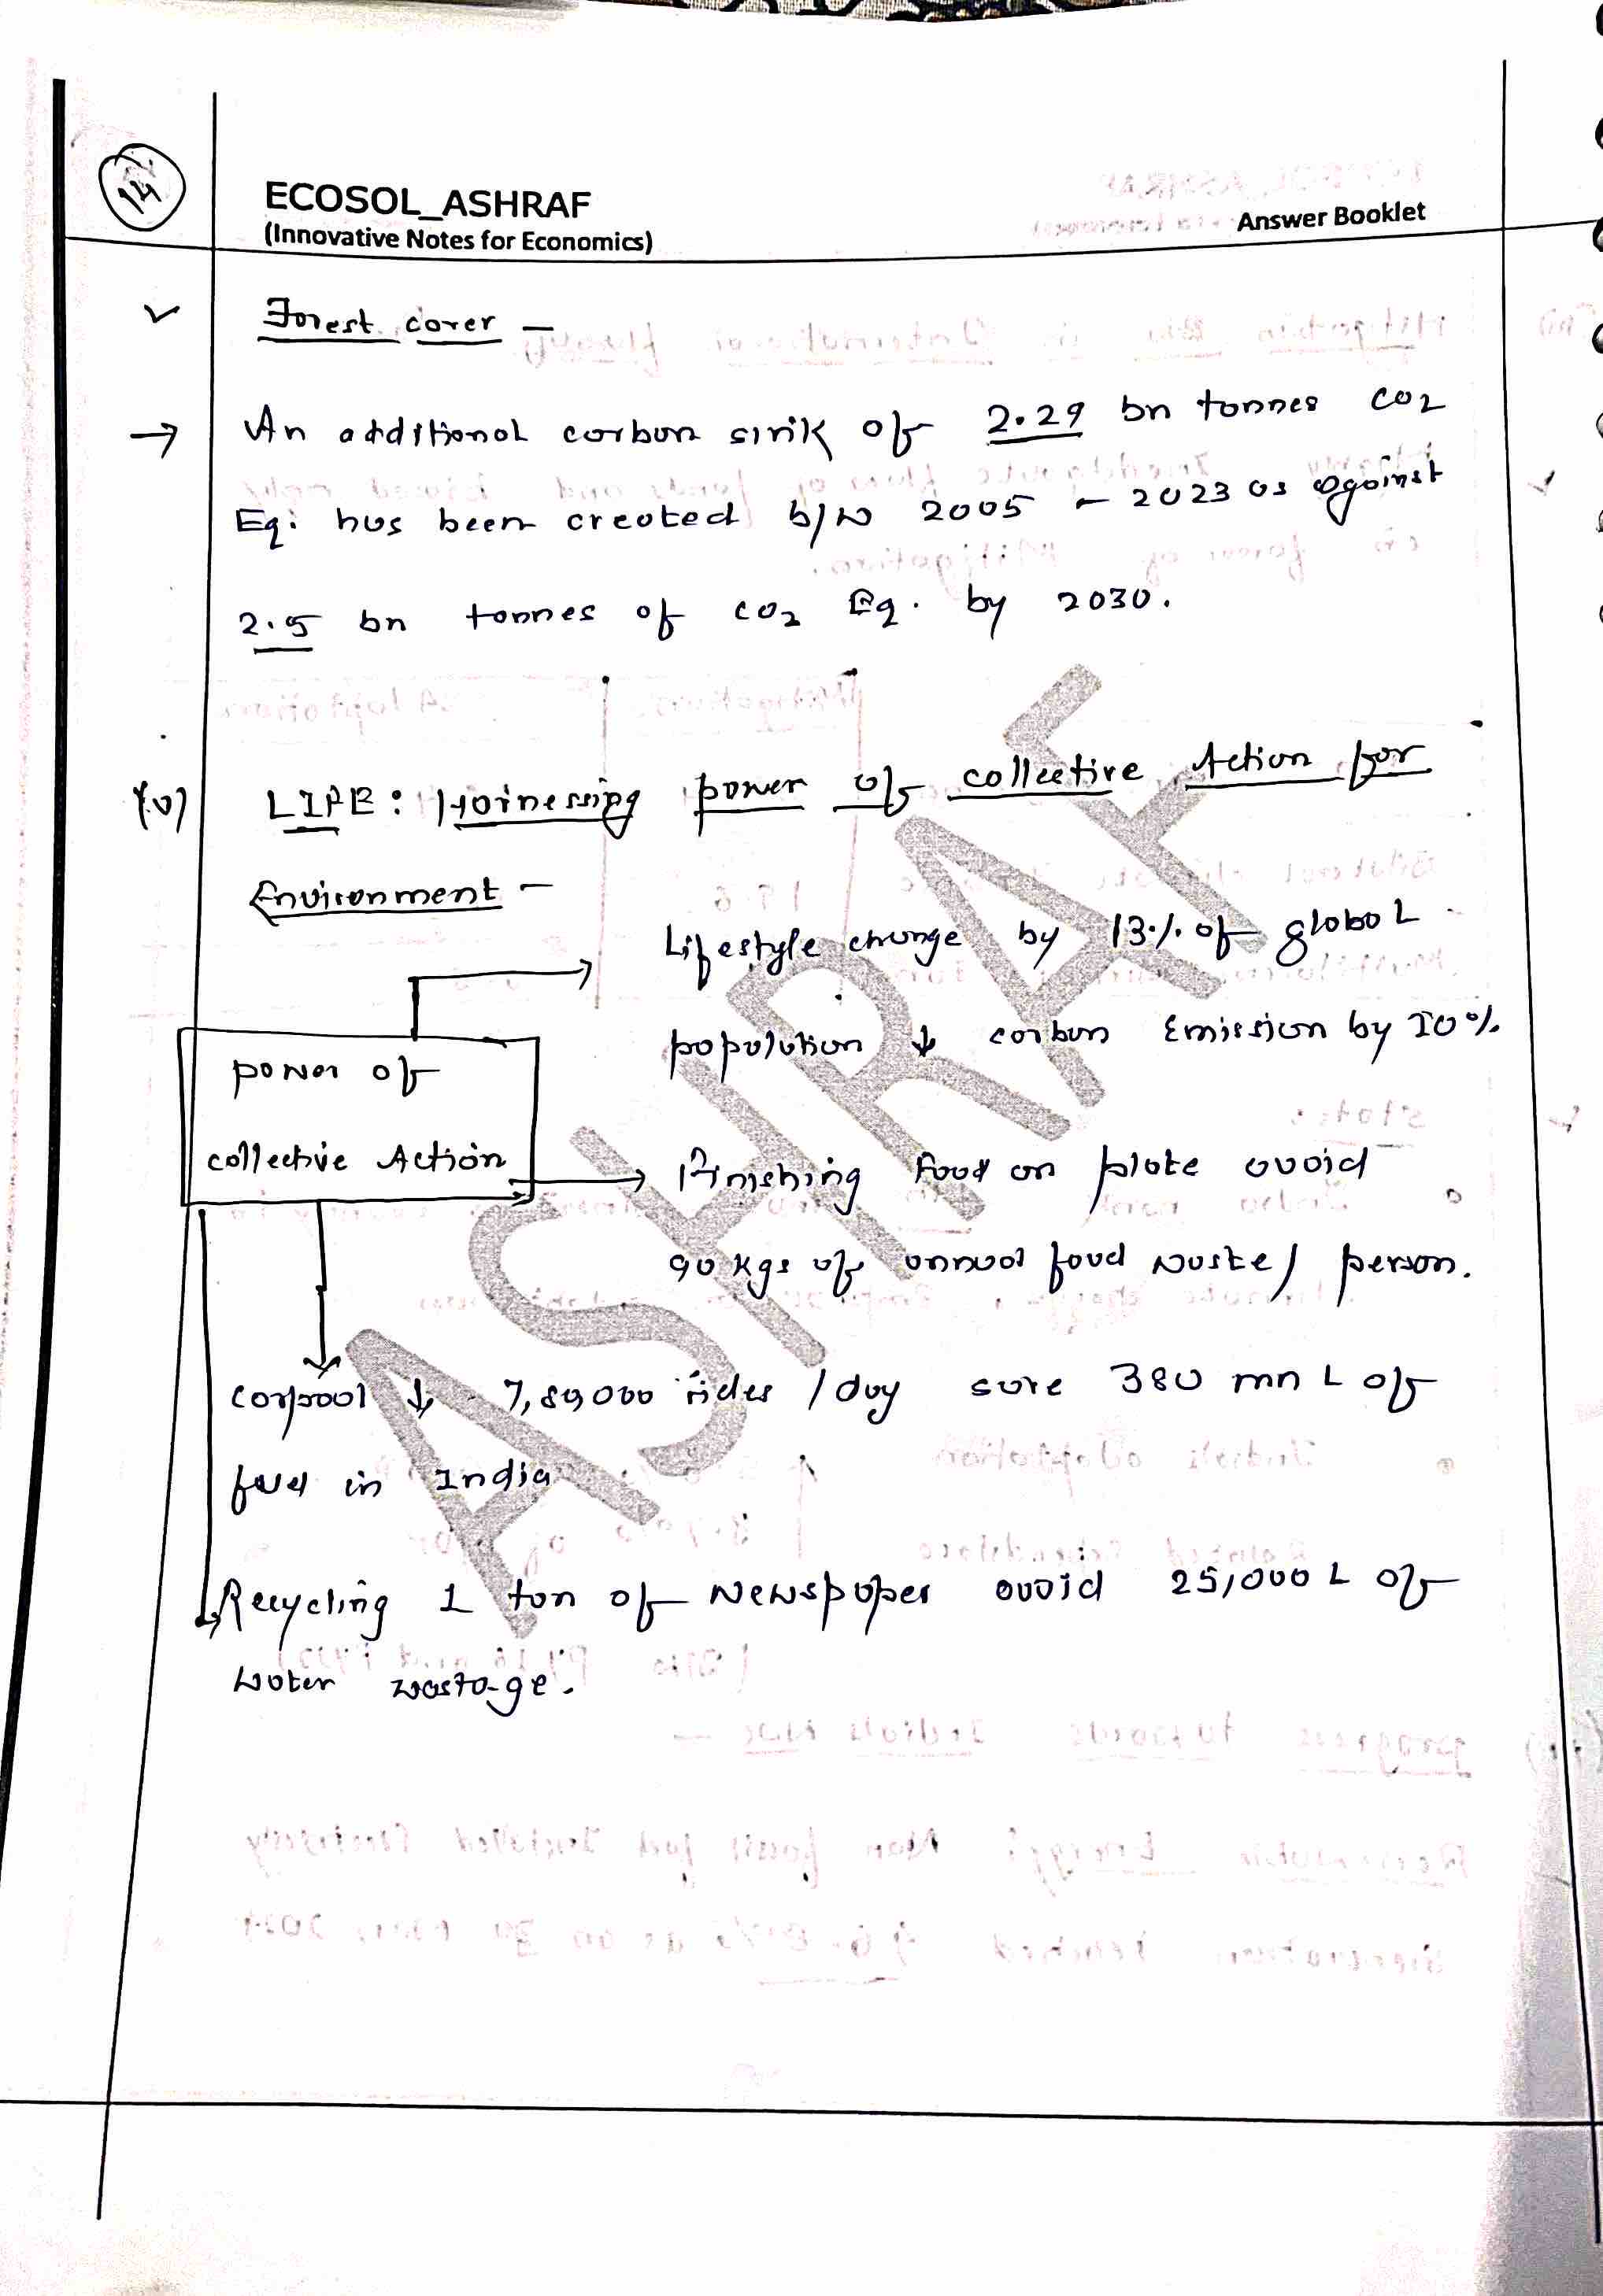 14
ECOSOL_ASHRAF
(Innovative Notes for Economics)
Answer Booklet
Forest cover –
→ An additional carbon sink of 2.29 bn tonnes CO2
Eq. has been created b/w 2005 – 2023 as against
2.5 bn tonnes of CO2 Eq. by 2030.
(v) LIFE: Harnessing power of collective Action for
Environment –
Lifestyle change by 13% of global
population ↓ carbon Emission by 20%
power of
collective Action
Finishing Food on plate avoid
90 kgs of annual food waste/ person.
carpool ↓ 7,89,000 rides /day save 380 mn L of
fuel in India
Recycling 1 ton of Newspaper avoid 25,000 L of
water wastage.
ASHRAF